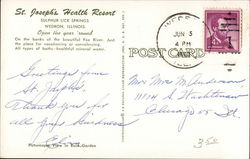 St. Joseph's Health Resort
SULPHUR LICK SPRINGS
WEDRON, ILLINOIS.
Open the year 'round
On the banks of the beautiful Fox River. Just
the place for vacationing or convalescing.
All types of baths - healthful mineral water.
POST CARD
JUN 5
4 PM
Greetings from
St. Joseph's
Thank you for
all your kindness
Mr Mrs M. Anderson
Chicago
Ill.
350
Picturesque View in Rock-Garden